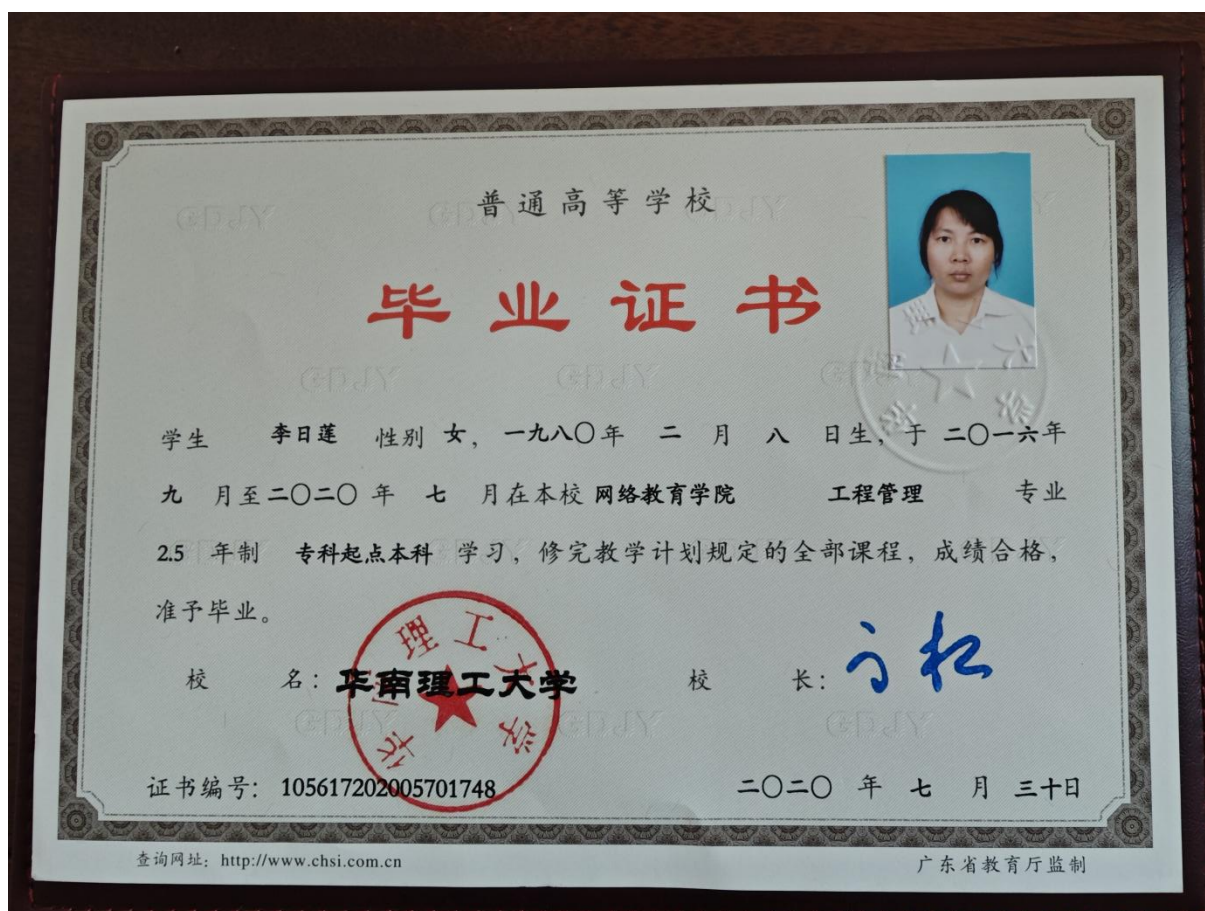 普通高等学校
毕业证书
学生 李日莲 性别 女，一九八〇年 二 月 八 日生，于 二〇一六年
九 月至二〇二〇 年 七 月在本校 网络教育学院 工程管理 专业
2.5 年制 专科起点本科 学习，修完教学计划规定的全部课程，成绩合格，
准予毕业。
校 名：华南理工大学 校 长：
华南理工大学
证书编号：105617202005701748 二〇二〇 年 七 月 三十日
查询网址：http://www.chsi.com.cn 广东省教育厅监制